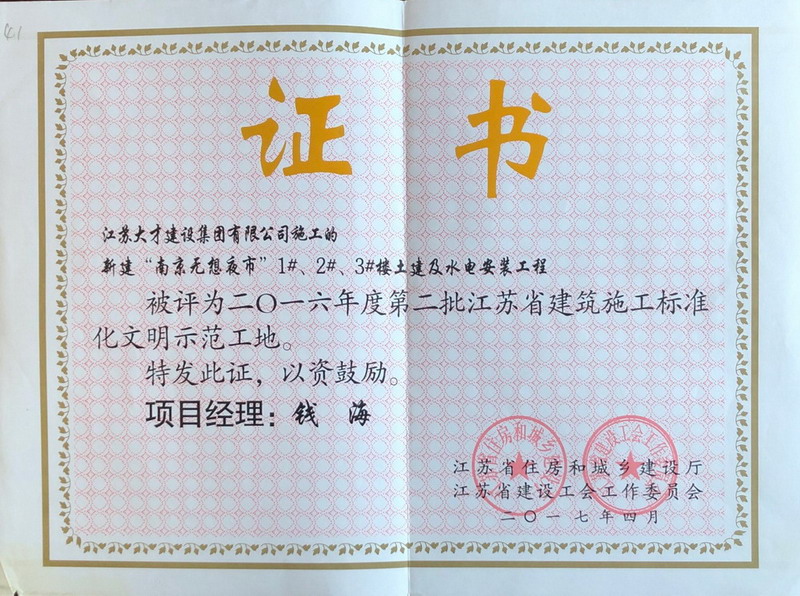 证书
江苏大才建设集团有限公司施工的
新建“南京无想夜市”1#、2#、3#楼土建及水电安装工程
被评为二〇一六年度第二批江苏省建筑施工标准
化文明示范工地。
特发此证，以资鼓励。
项目经理：钱 海
江苏省住房和城乡建设厅
江苏省建设工会工作委员会
二〇一七年四月